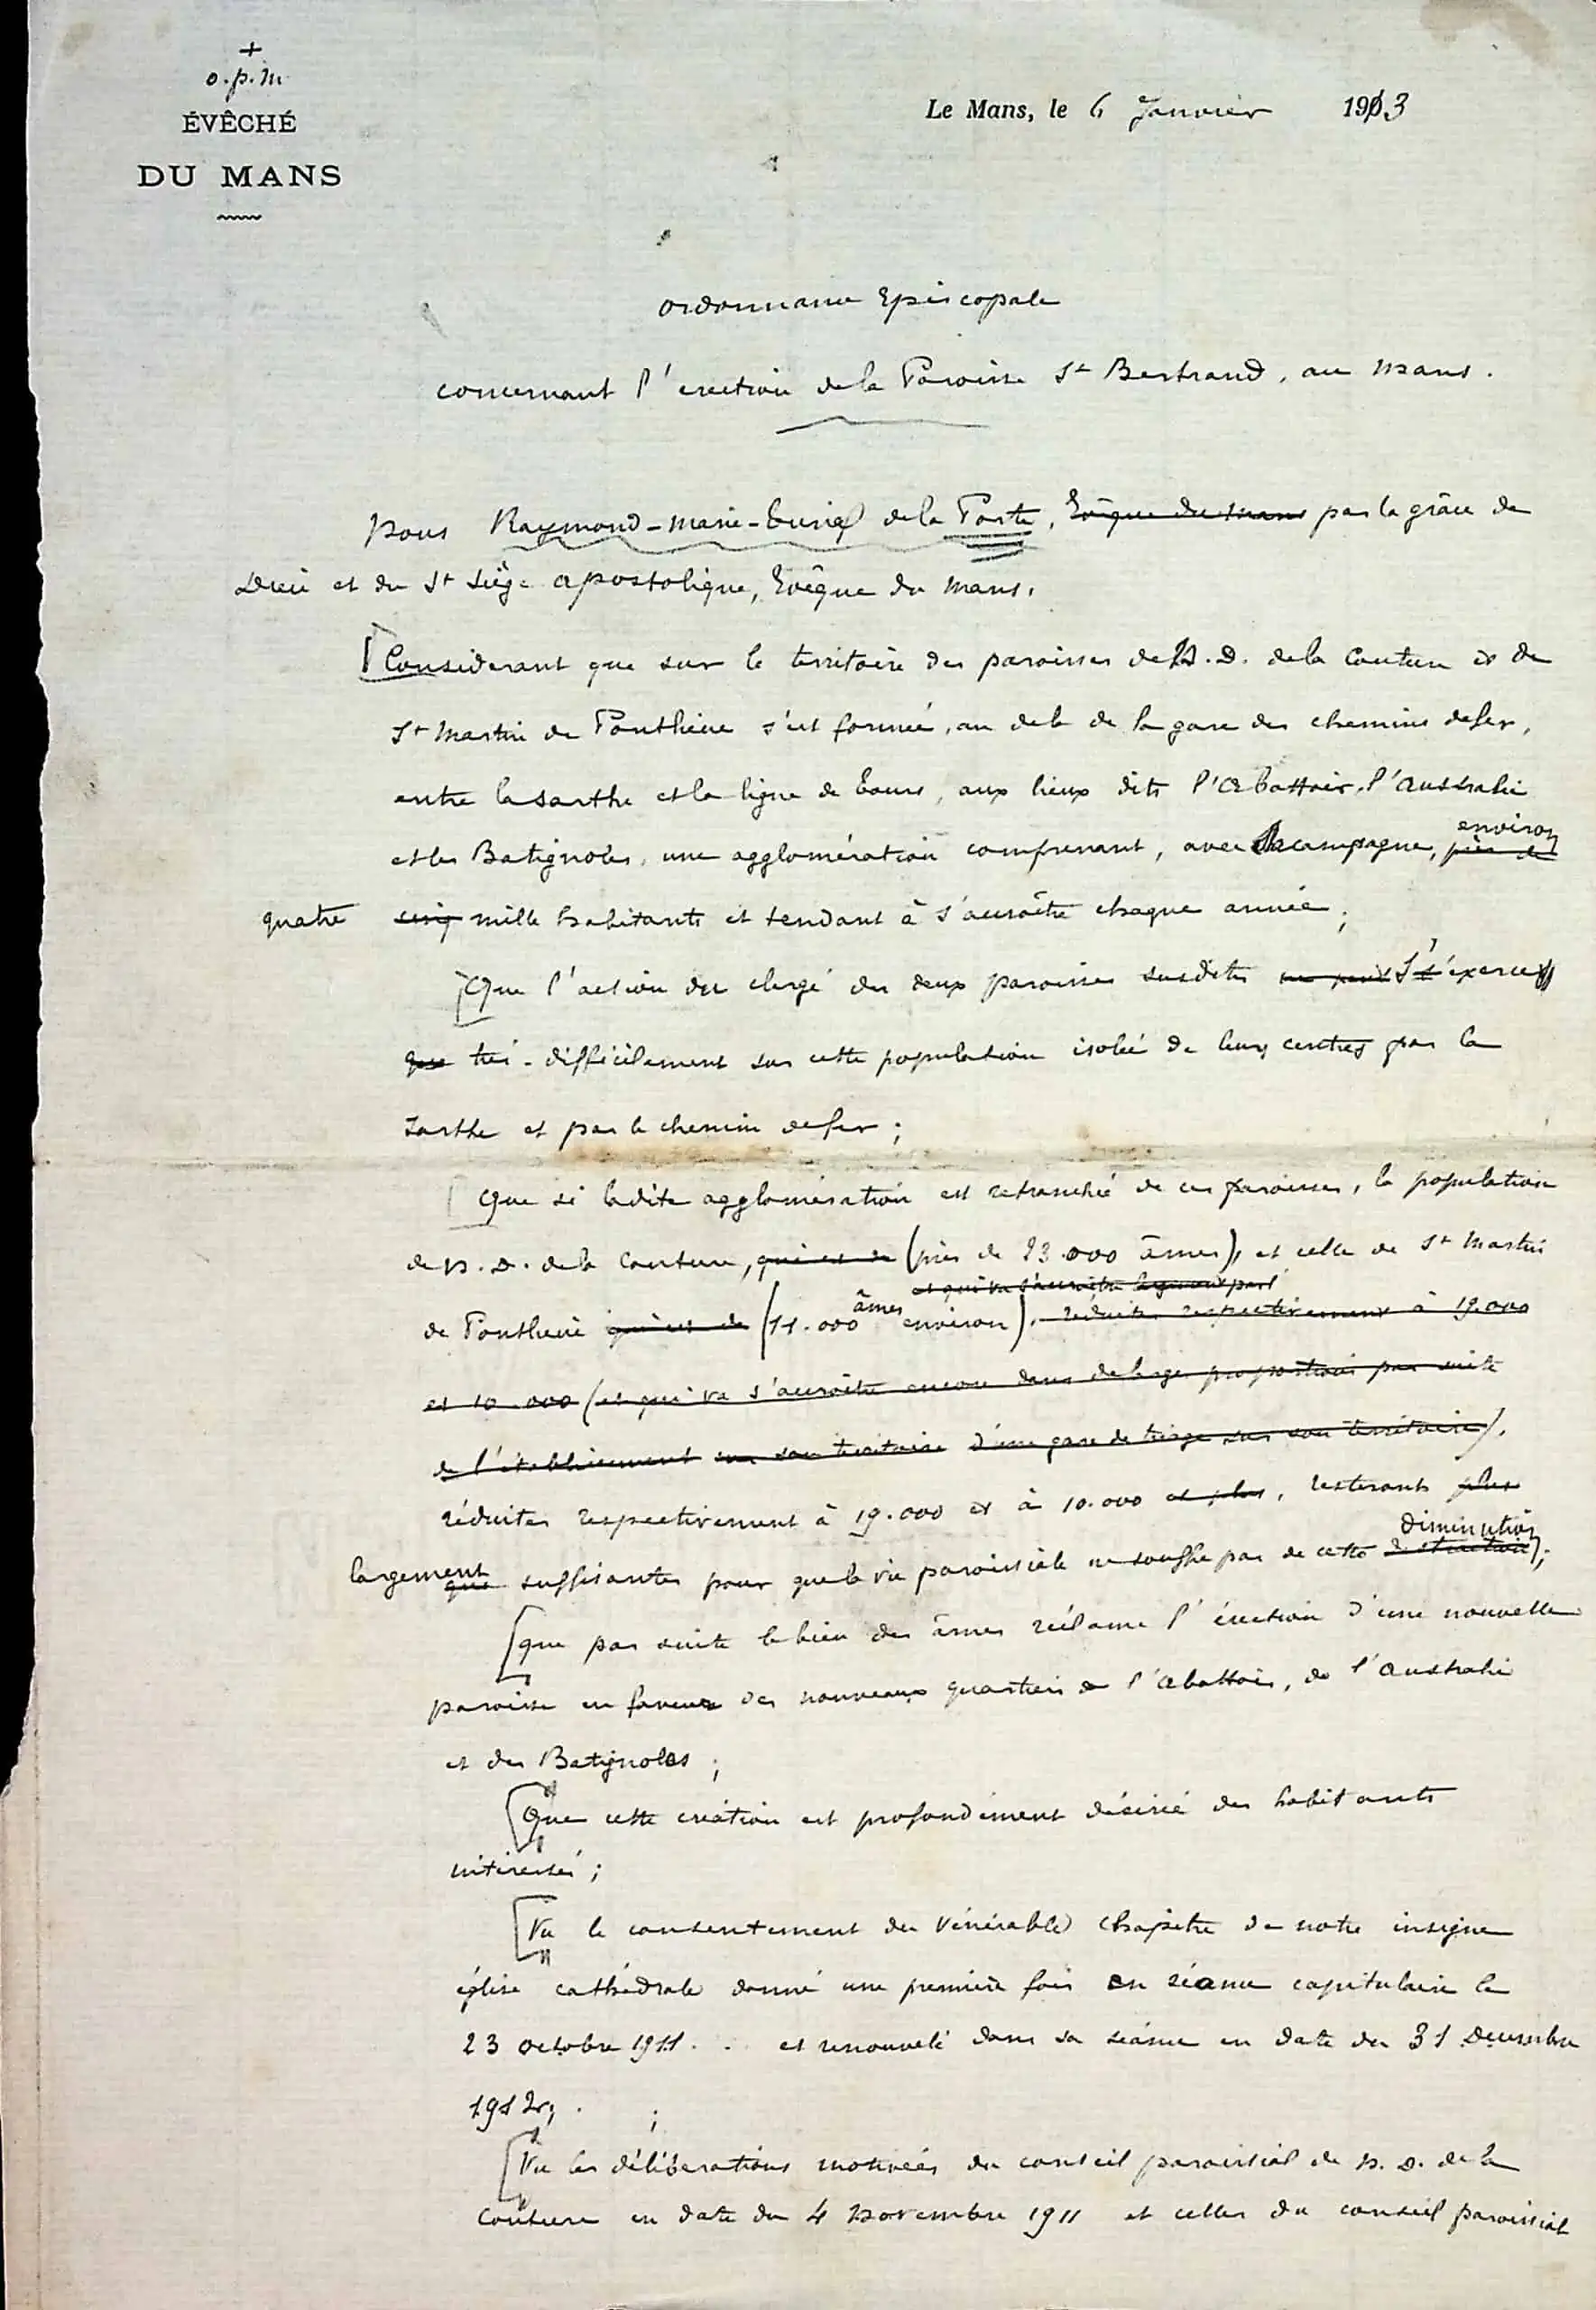 +
o.p.m
ÉVÊCHÉ
DU MANS
Le Mans, le 6 Janvier 1913
Ordonnance Episcopale
concernant l'erection de la Paroisse St Bertrand, au Mans.
Nous Raymond-Marie- de la Porte, Evêque du Mans par la grâce de
Dieu et du St Siège apostolique, Evêque du Mans.
Considerant que sur le territoire des paroisses de N.D. de la Couture et de
St Martin de Pontlieue s'est formée, au delà de la gare des chemins de fer,
entre la Sarthe et la ligne de Tours, aux lieux dits l'Abattoir, l'Australie
et les Batignoles, une agglomération comprenant, avec la campagne, près de environ
quatre cinq mille habitants et tendant à s'accroître chaque année;
Que l'action du clergé des deux paroisses susdites ne peut s'exerce
que très-difficilement sur cette population isolée de leurs centres par la
Sarthe et par le chemin de fer;
Que si ladite agglomération est retranchée de ces paroisses, la population
de N.D. de la Couture, qui est de (près de 23.000 âmes), et celle de St Martin
et qui va s'accroître largement par
de Pontlieue qui est de (11.000 âmes environ), réduites respectivement à 19.000
et 10.000 (et qui va s'accroître encore dans de larges proportions par suite
de l'établissement sur son territoire d'une gare de triage sur son territoire),
réduites respectivement à 19.000 et à 10.000 et plus, resteront plus
largement que suffisantes pour que la vie paroissiale ne souffre pas de cette diminution;
que par suite le bien des âmes réclame l'érection d'une nouvelle
paroisse en faveur des nouveaux quartiers de l'Abattoir, de l'Australie
et des Batignoles;
Que cette création est profondément désirée des habitants
intéressés;
Vu le consentement du Vénérable Chapitre de notre insigne
église cathédrale donné une première fois en séance capitulaire le
23 octobre 1911 . . et renouvelé dans sa séance en date du 31 Decembre
1912; . ;
Vu les délibérations motivées du conseil paroissial de N.D. de la
Couture en date du 4 Novembre 1911 et celles du conseil paroissial